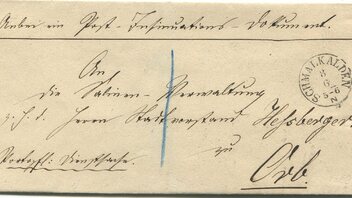 Anbei ein Post-Insinuations-Dokument.
An
die Salinen-Verwaltung
z. H. d. Herrn Stadtvorstand Hessberger
zu
Portopfl. Dienstsache.
Orb.
SCHMALKALDEN
8
6
5-6
N